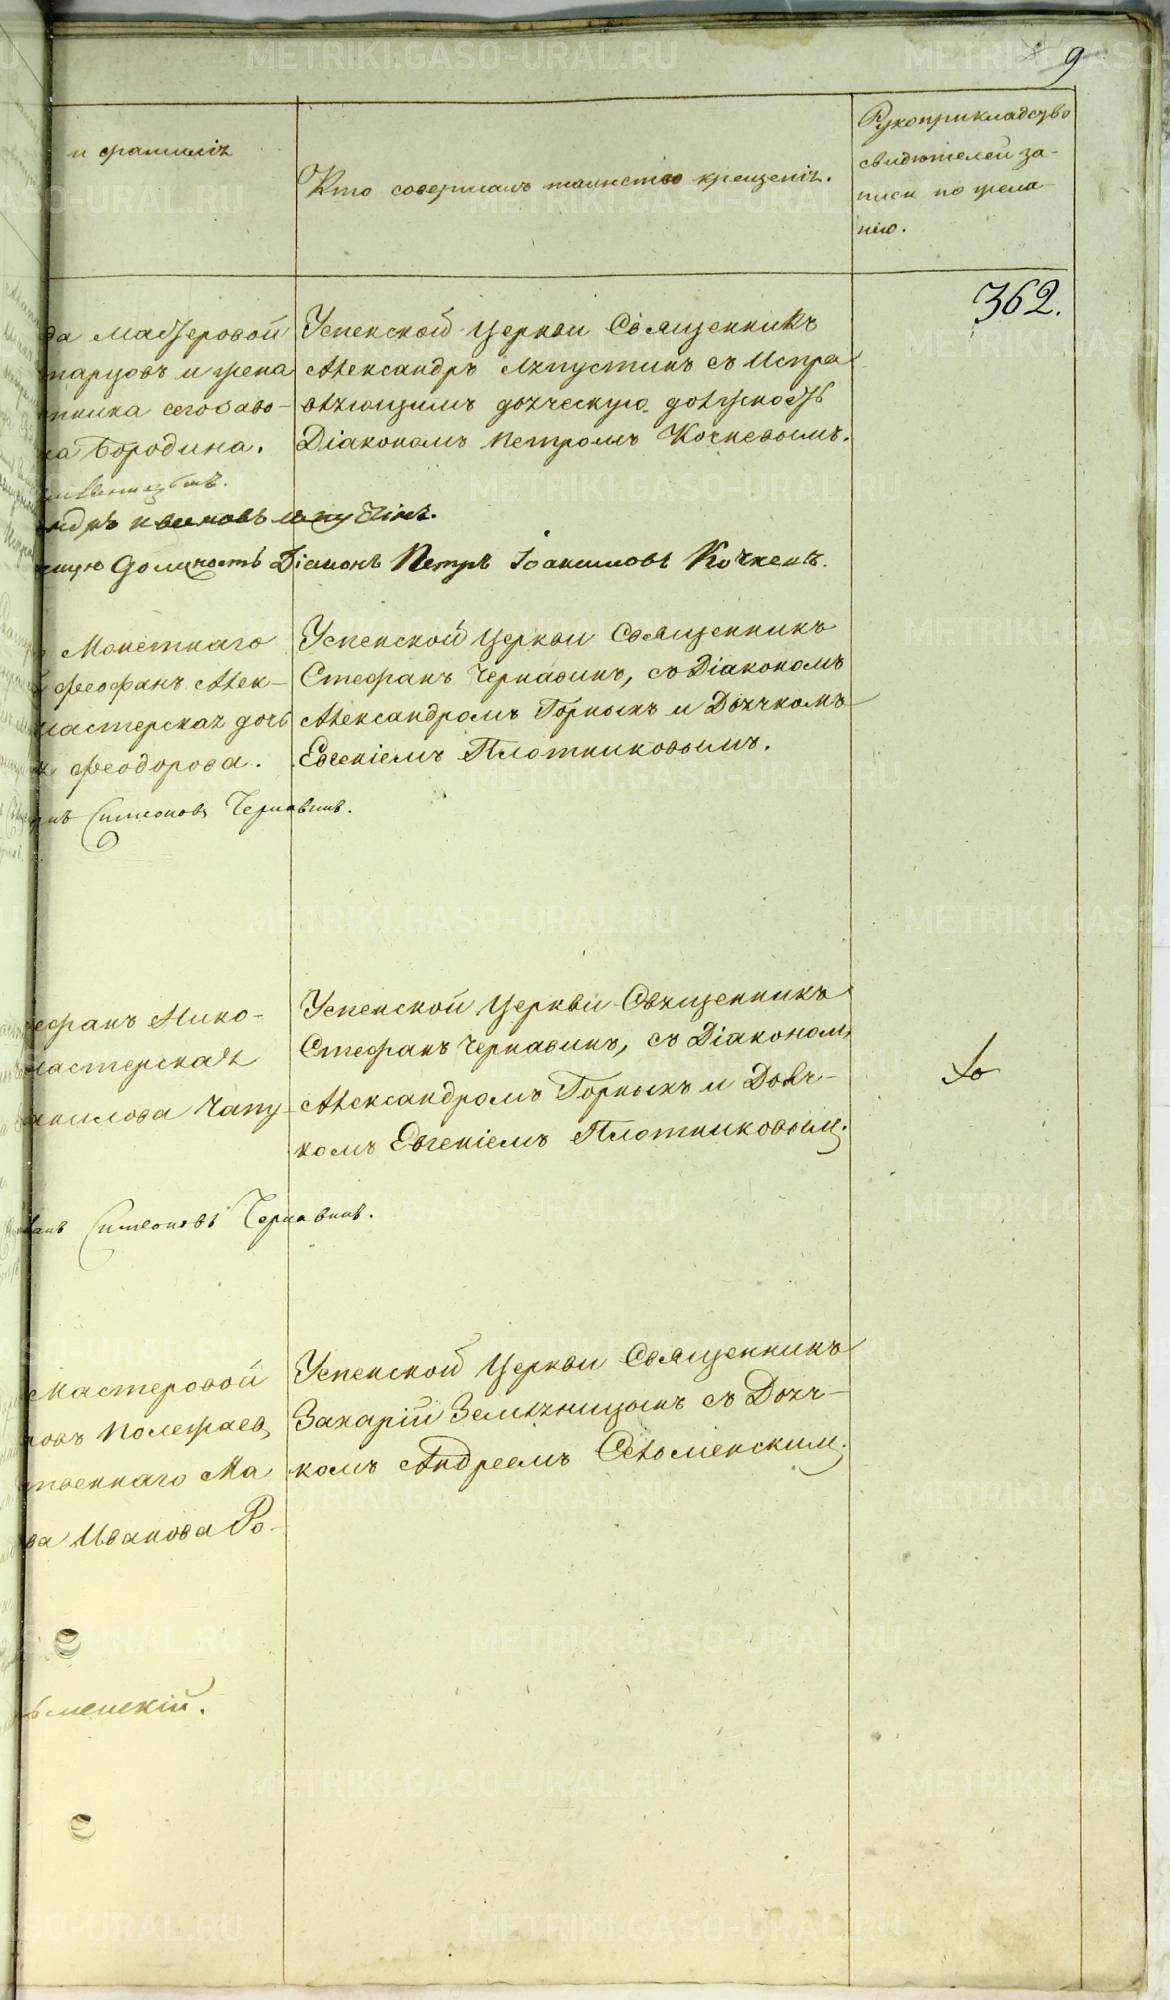 9
и фамилія
Кто совершалъ таинство крещенія.
Рукоприкладство
свидѣтелей за-
писи по жела-
нію.
362.
да мастеровой
тарцовъ и жена
тника сего заво-
на Бородина.
Успенской церкви Священникъ
Александръ Лапустинъ съ испра
вляющимъ дьяческую должность
Діакономъ Петромъ Кочневымъ.
ндръ Іваковъ
ящую Должность Діаконъ Петръ Іоакимовъ Кочневъ.
Монетнаго
Феофанъ Алек-
мастерская дочь
Феодорова.
Успенской церкви Священникъ
Стефанъ Чернавинъ, съ Діакономъ
Александромъ Горныхъ и Дьячкомъ
Евгеніемъ Плотниковымъ.
анъ Симеоновъ Чернавинъ.
ефанъ Нико-
мастерская
анилова Чапу-
Успенской церкви Священникъ
Стефанъ Чернавинъ, съ Діакономъ
Александромъ Горныхъ и Дьяч-
комъ Евгеніемъ Плотниковым.
анъ Симеоновъ Чернавинъ.
мастеровой
ровъ Полежаев
твеннаго Ма
ва Иванова Ро-
Успенской церкви Священникъ
Захарій Земляницынъ съ Дьяч-
комъ Андреемъ Сельменским.
ьменскій.